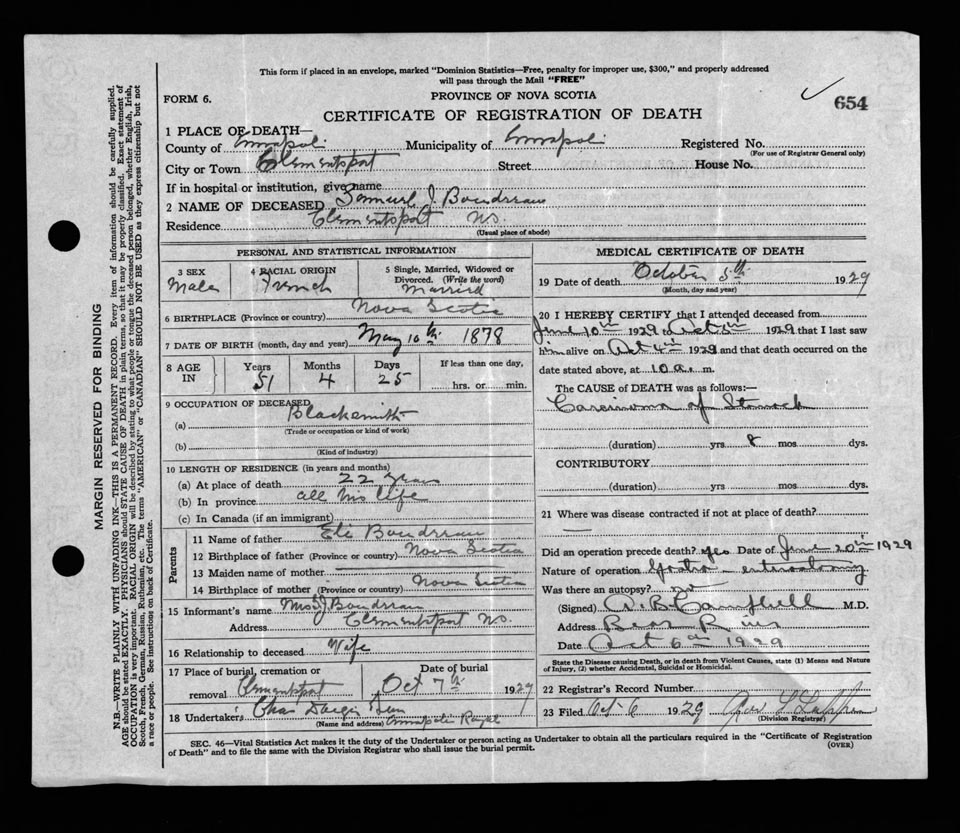 This form if placed in an envelope, marked "Dominion Statistics—Free, penalty for improper use, $300," and properly addressed
will pass through the Mail "FREE"
FORM 6.
PROVINCE OF NOVA SCOTIA
654
CERTIFICATE OF REGISTRATION OF DEATH
1 PLACE OF DEATH—
County of Annapolis Municipality of Annapolis Registered No.
(For use of Registrar General only)
City or Town Clementsport Street House No.
If in hospital or institution, give name
2 NAME OF DECEASED Samuel J. Boudreau
Residence Clementsport NS.
(Usual place of abode)
PERSONAL AND STATISTICAL INFORMATION
3 SEX 4 RACIAL ORIGIN 5 Single, Married, Widowed or
Divorced. (Write the word)
Male French Married
6 BIRTHPLACE (Province or country) Nova Scotia
7 DATE OF BIRTH (month, day and year) May 10th 1878
8 AGE IN Years Months Days If less than one day,
51 4 25 hrs. or min.
9 OCCUPATION OF DECEASED
(a) Blacksmith
(Trade or occupation or kind of work)
(b)
(Kind of industry)
10 LENGTH OF RESIDENCE (in years and months)
(a) At place of death 22 years
(b) In province all his life
(c) In Canada (if an immigrant)
Parents
11 Name of father Eli Boudreau
12 Birthplace of father (Province or country) Nova Scotia
13 Maiden name of mother
14 Birthplace of mother (Province or country) Nova Scotia
15 Informant's name Mrs S J Boudreau
Address Clementsport NS.
16 Relationship to deceased Wife
17 Place of burial, cremation or Date of burial
removal Clementsport Oct 7th 1929
18 Undertaker Chas
(Name and address) Annapolis Royal
MEDICAL CERTIFICATE OF DEATH
19 Date of death October 5th 1929
(Month, day and year)
20 I HEREBY CERTIFY that I attended deceased from
June 10th 1929 to Oct 1929 that I last saw
him alive on Oct 4th 1929 and that death occurred on the
date stated above, at 10 a. m.
The CAUSE of DEATH was as follows:—
Carcinoma of Stomach
(duration) yrs 8 mos dys.
CONTRIBUTORY
(duration) yrs mos dys.
21 Where was disease contracted if not at place of death?
—
Did an operation precede death? yes Date of June 20th 1929
Nature of operation Gastro-enterostomy
Was there an autopsy? no
(Signed) Campbell M.D.
Address Bear River
Date Oct 6th 1929
State the Disease causing Death, or in death from Violent Causes, state (1) Means and Nature
of Injury, (2) whether Accidental, Suicidal or Homicidal.
22 Registrar's Record Number
23 Filed Oct 6 1929
(Division Registrar)
SEC. 46—Vital Statistics Act makes it the duty of the Undertaker or person acting as Undertaker to obtain all the particulars required in the "Certificate of Registration
of Death" and to file the same with the Division Registrar who shall issue the burial permit.
(OVER)
MARGIN RESERVED FOR BINDING
N.B.—WRITE PLAINLY WITH UNFADING INK—THIS IS A PERMANENT RECORD. Every item of information should be carefully supplied.
AGE should be stated EXACTLY. PHYSICIANS should STATE CAUSE OF DEATH in plain terms, so that it may be properly classified. Exact statement of
OCCUPATION is very important. RACIAL ORIGIN will be described by stating to what people or tongue the deceased person belonged, whether English, Irish,
Scotch, French, German, Russian, Ruthenian, etc. The terms "AMERICAN" or "CANADIAN" SHOULD NOT BE USED as they express citizenship but not
a race or people. See instructions on back of Certificate.